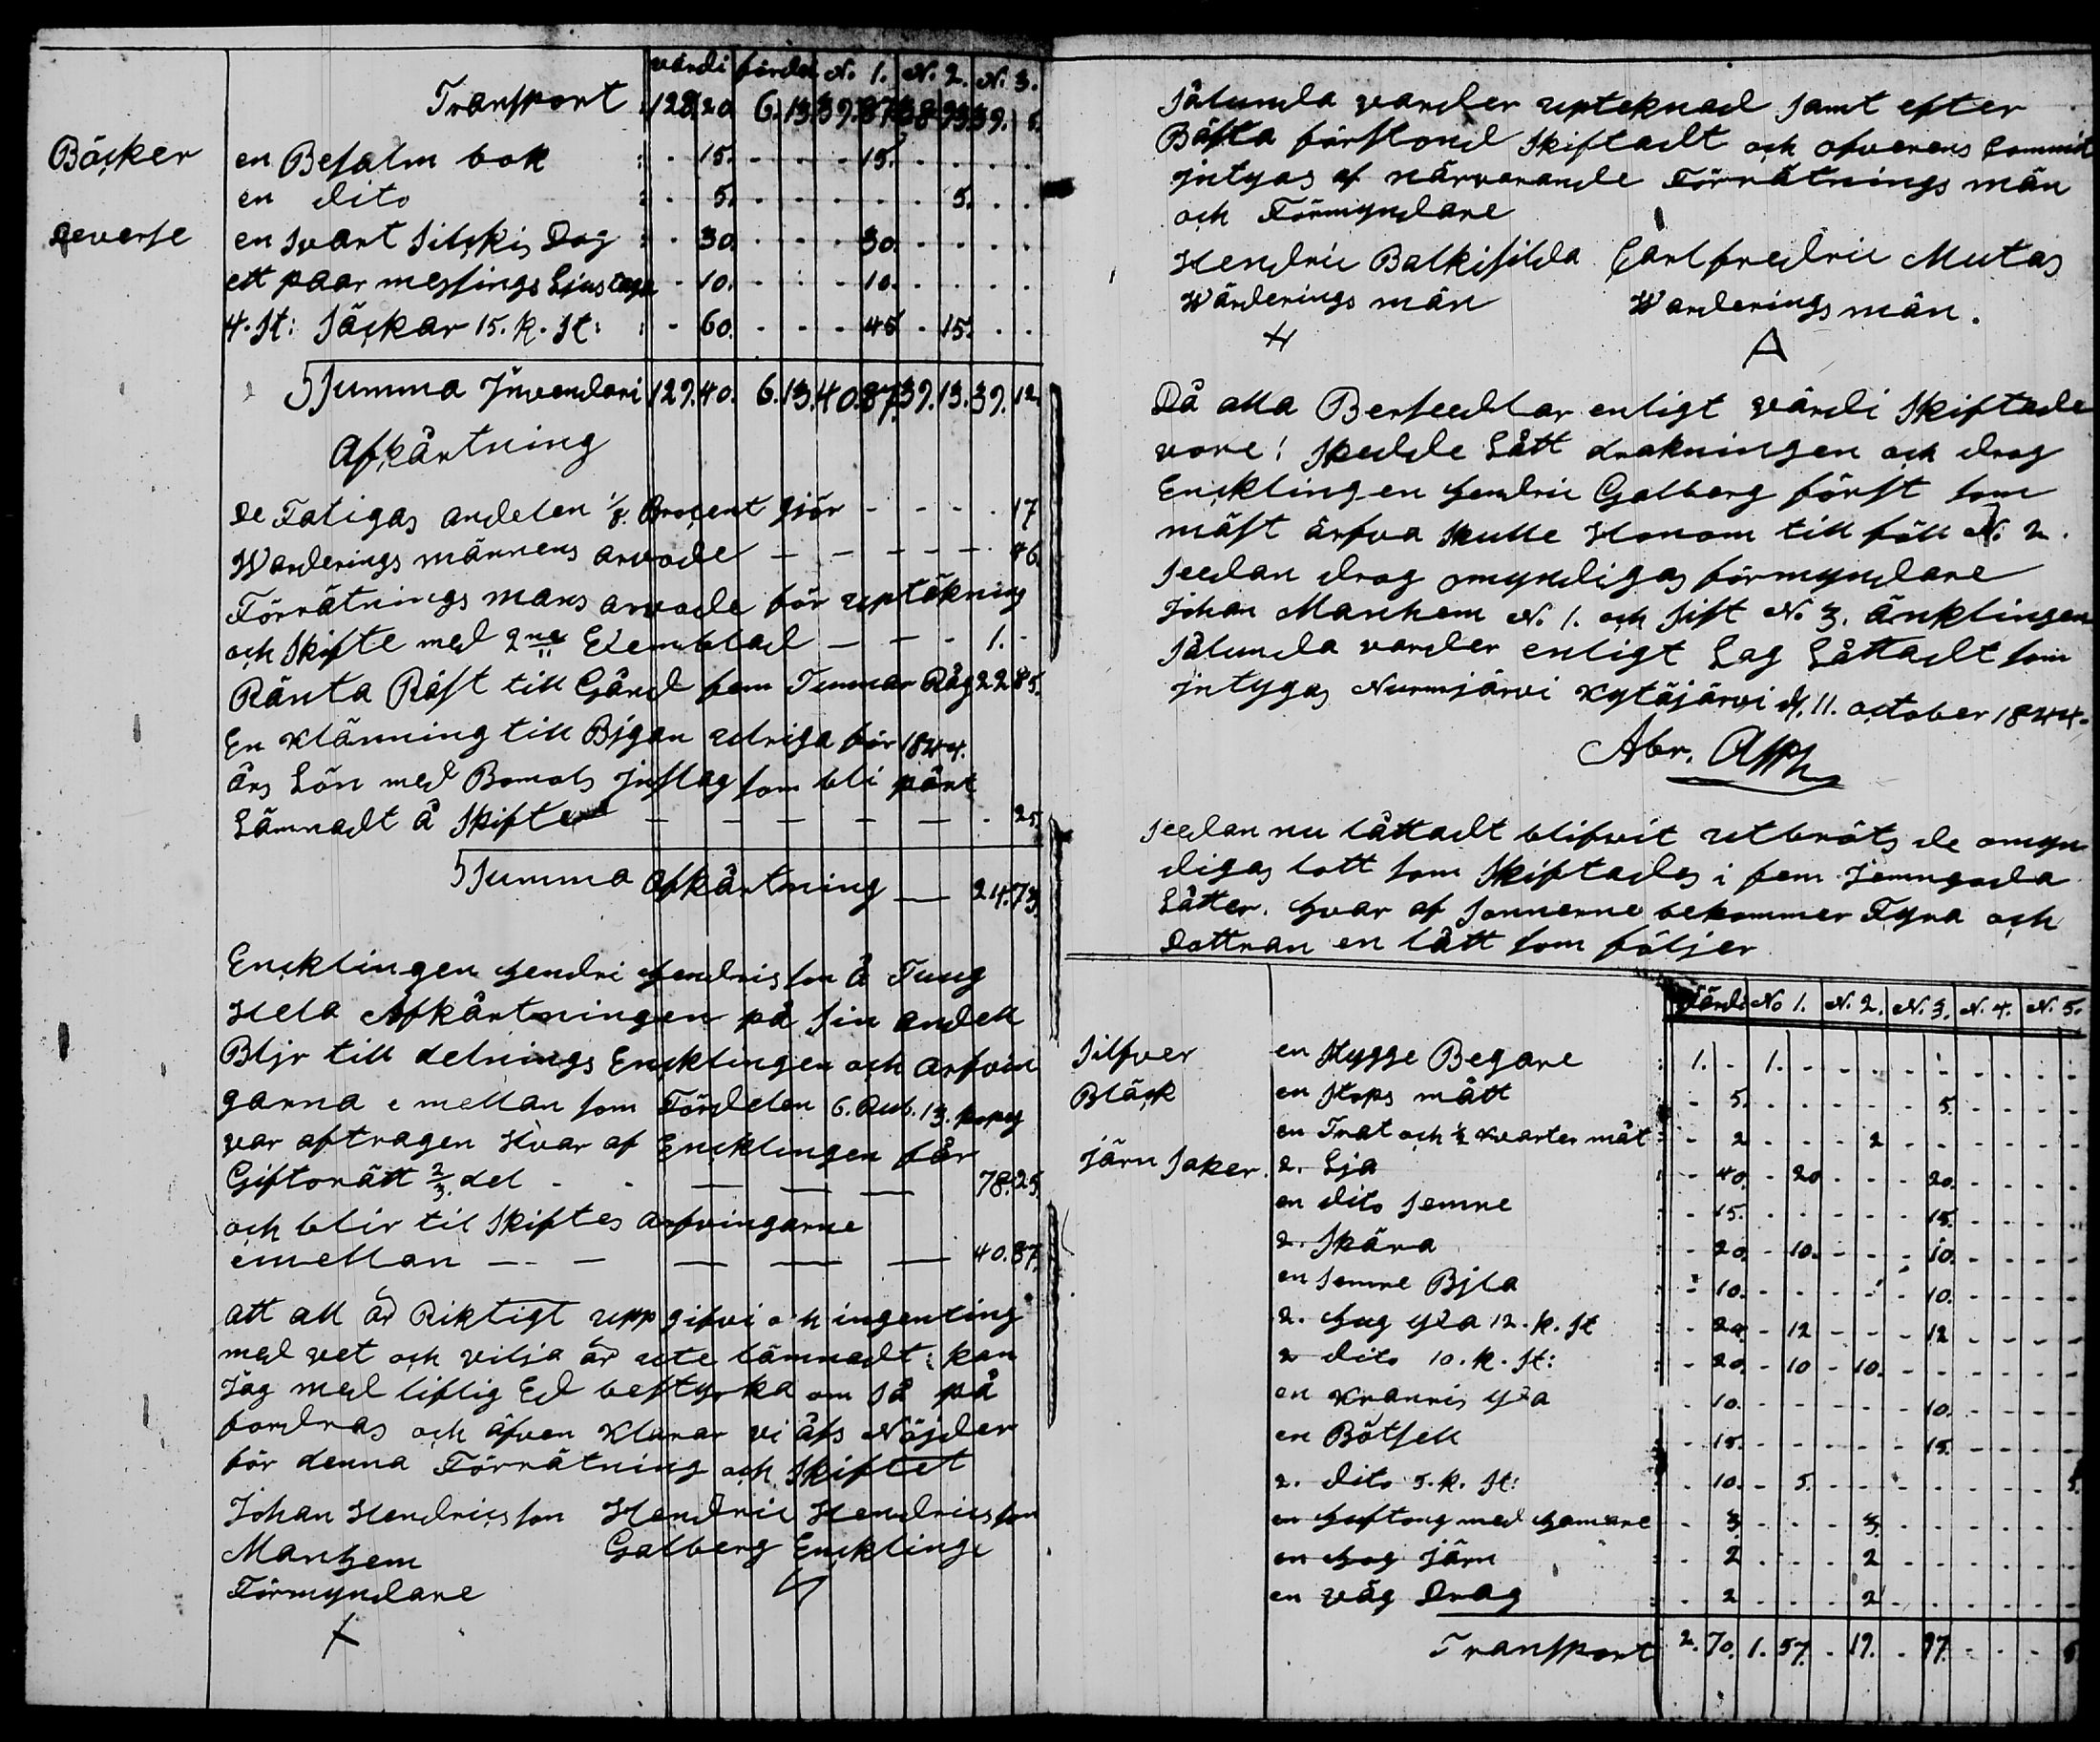 värdi fördel N. 1. N. 2. N. 3.
Transport 128.20. 6.13. 39.87. 38.93. 39.
Böcker en Besalm bok : - 15. - - - - 15. - - - -
en dito : - 5. - - - - - - 5. - -
Deverse en svart silkis Dog : - 30. - - - - 30. - - - -
ett paar messings Ljustaga - 10. - - - - 10. - - - -
4. st: Säckar 15. k. st: : - 60. - - - - 45 - 15. - -
Summa Jnvendari 129.40. 6.13. 40.87. 39.13. 39.12.
Afkårtning
De Fatigas andelen 1/8. Procent gjör - - - - 17
Warderings männens arvode — — — — — 46.
Förrätnings mans arvode för uptökning
och Skifte med 2ne Exemblad — — - 1. -
Ränta Råst till Gård fem Tunnar Råg 22.85.
En Klänning till Bigan Ulriga för 1844.
års Lön med Bomols jnslag som bli pårt
Lämnadt å Skifte — — — — — - 25.
Summa afkårtning — 24.73.
Encklingen Hendri Hendrisson å Tung
Hela Afkårtningen på sin andell
Blir till delnings Encklingen och arfvin
garna emellan som Fördelen 6. Rub. 13. kopeg
var aftragen Hvar af Encklingen får
Giftorätt 2/3. del - - — — — 78.25.
och blir til Skiftes arfvingarne
emellan — - — — — — 40.87.
att all är Riktigt uppgifvi och ingenting
med vet och vilja är ute lämnadt: kan
Jag med liflig Ed bestyrka om så på
fordras och äfven Klarar vi åss Nöjder
för denna Förrätning och Skiftet
Johan Hendricsson Hendric Hendricsson
Manhem Galberg Encklinge
Förmyndare
Sålunda varder upteknad samt efter
Bästa förstond Skiftadt och ofverens Commit
jntygas af närvarande Förrätnings män
och Förmyndare
Hendric Balkisilda Carlfredric Mutas
Wärderings män Warderings män.
H A
Då alla Berseedlar enligt värdi Skiftade
vore! Skedde Lått drakningen och drog
Encklingen Hendric Galberg först som
mäst ärfva skulle Honom till föll N. 2.
Seedan drog omyndigas förmyndare
Johan Manhem N. 1. och sist N. 3. änklingen
Sålunda varder enligt Lag Låttadt som
jntygas Nurmjärvi Kytäjärvi d. 11. october 1844.
Abr.
Seedan nu låttadt blifvit utbröts de omyn
digas lott som Skiftades i fem Jemngoda
Låtter. hvar af Sonnerne bekommer Fyra och
Dottran en lått som följer
Värdi No 1. N. 2. N. 3. N. 4. N. 5.
Silfver en Hygge Begare : 1. - 1. - - - - - - - - -
Bläck en Stops mått : - 5. - - - - - 5. - - - -
en Trat och 1/2 kvarter måt : - 2 - - - 2 - - - - - -
Järn Saker. 2. Lja : - 40. - 20 - - - 20. - - - -
en dito semre : - 15. - - - - - 15. - - - -
2. Skära : - 20. - 10. - - - 10. - - - -
en Semre Bjla : - 10. - - - - - 10. - - - -
2. hug yxa 12. k. st : - 24. - 12 - - - 12 - - - -
2 dito 10. k. st: : - 20. - 10 - 10. - - - - - -
en Kranris yxa - 10. - - - - - 10. - - - -
en Bötsell : - 15. - - - - - 15. - - - -
2. dito 5. k. st: - 10. - 5. - - - - - - - 5.
en hoftong med hamare - 3. - - - 3. - - - - - -
en hog järn : - 2 - - - 2 - - - - - -
en väg Drag : - 2 - - - 2 - - - - - -
Transport 2. 70. 1. 57. - 19. - 97. - - -